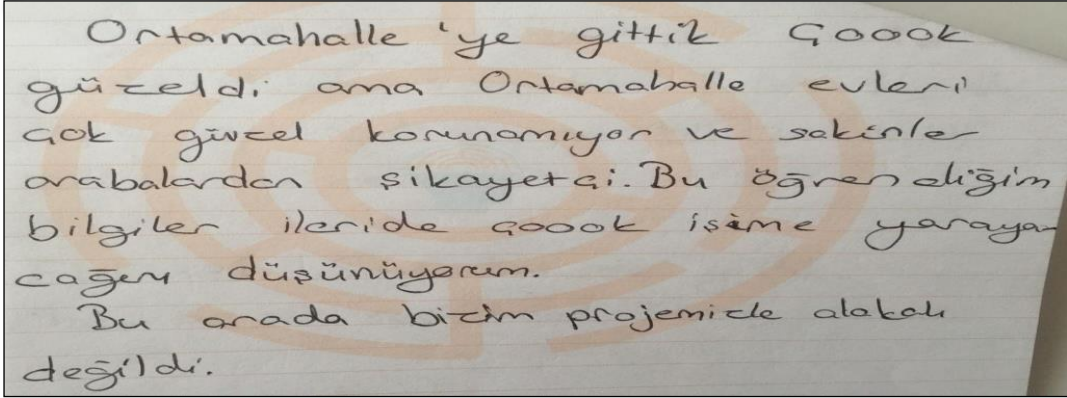 Ortamahalle'ye gittik Çoook
güzeldi ama Ortamahalle evleri
çok güzel korunamıyor ve sakinler
arabalardan şikayetçi. Bu öğrendiğim
bilgiler ileride çoook işime yaraya-
cağını düşünüyorum.
Bu arada bizim projemizle alakalı
değildi.